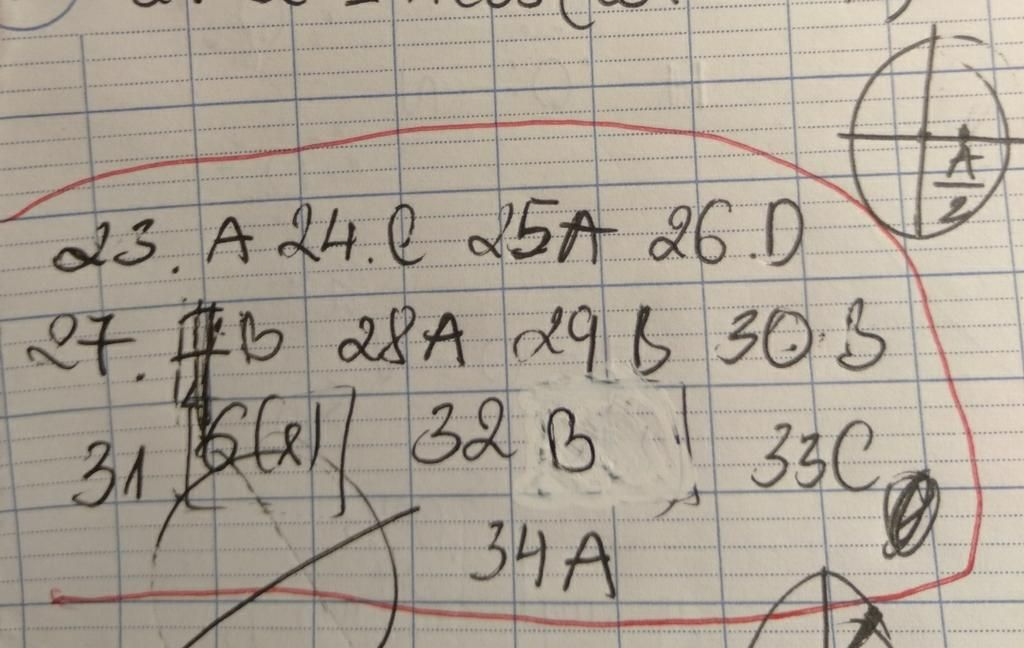 A/2
23. A 24. C 25A 26. D
27. B 28A 29 B 30. B
31 [6(s)] 32 B 33C
34A